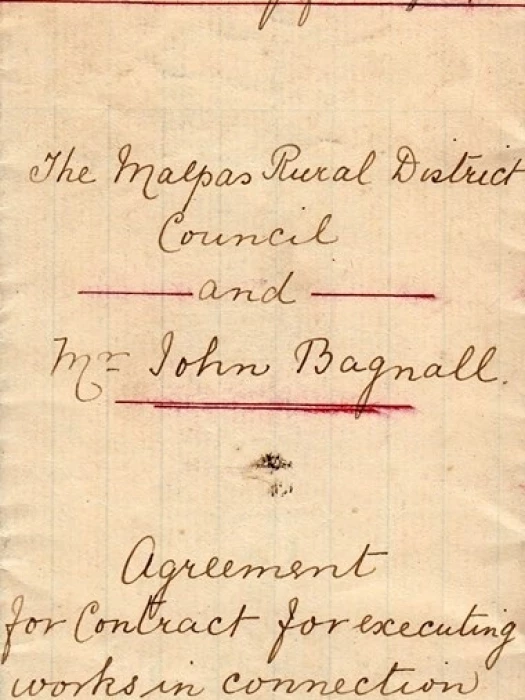 The Malpas Rural District
Council
and
Mr John Bagnall.
Agreement
for Contract for executing
works in connection